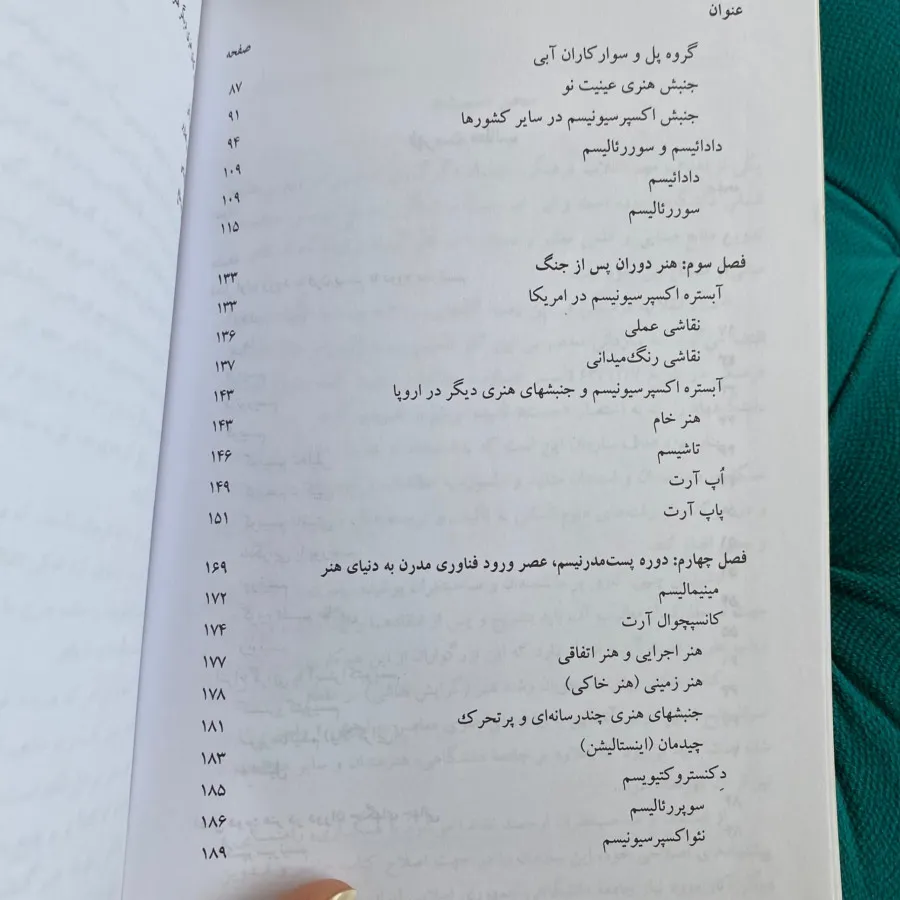 عنوان صفحه
گروه پل و سوارکاران آبی ۸۷
جنبش هنری عینیت نو ۹۱
جنبش اکسپرسیونیسم در سایر کشورها ۹۴
دادائیسم و سوررئالیسم ۱۰۹
دادائیسم ۱۰۹
سوررئالیسم ۱۱۵
فصل سوم: هنر دوران پس از جنگ ۱۳۳
آبستره اکسپرسیونیسم در امریکا ۱۳۳
نقاشی عملی ۱۳۶
نقاشی رنگ‌میدانی ۱۳۷
آبستره اکسپرسیونیسم و جنبشهای هنری دیگر در اروپا ۱۴۳
هنر خام ۱۴۳
تاشیسم ۱۴۶
اُپ آرت ۱۴۹
پاپ آرت ۱۵۱
فصل چهارم: دوره پست‌مدرنیسم، عصر ورود فناوری مدرن به دنیای هنر ۱۶۹
مینیمالیسم ۱۷۲
کانسپچوال آرت ۱۷۴
هنر اجرایی و هنر اتفاقی ۱۷۷
هنر زمینی (هنر خاکی) ۱۷۸
جنبشهای هنری چندرسانه‌ای و پرتحرک ۱۸۱
چیدمان (اینستالیشن) ۱۸۳
دِکنستروکتیویسم ۱۸۵
سوپررئالیسم ۱۸۶
نئواکسپرسیونیسم ۱۸۹